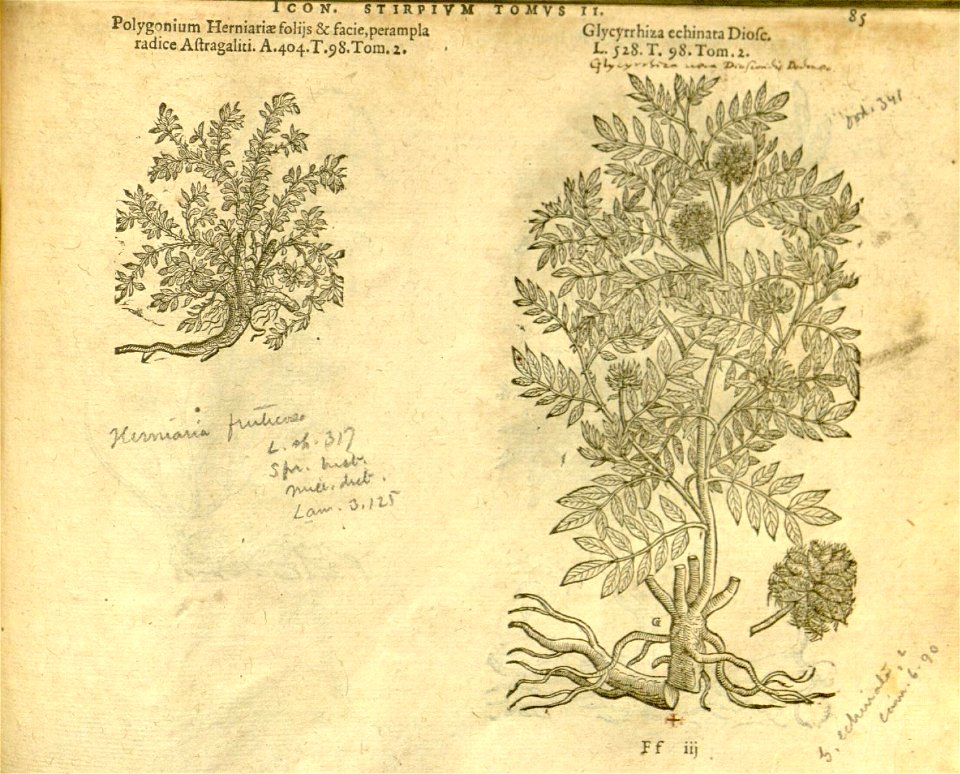 ICON. STIRPIVM TOMVS II.
85
Polygonium Herniariæ folijs & facie, perampla
radice Astragaliti. A.404.T.98.Tom.2.
Glycyrrhiza echinata Diosc.
L. 528. T. 98. Tom. 2.
Glycyrrhiza vera Dioscoridis Dodonæo.
341
Herniaria fruticosa
L. sp. 317
Spr. hist.
Mill. dict.
Lam. 3.125
G
G. echinata
cam. 6. 90
Ff iij